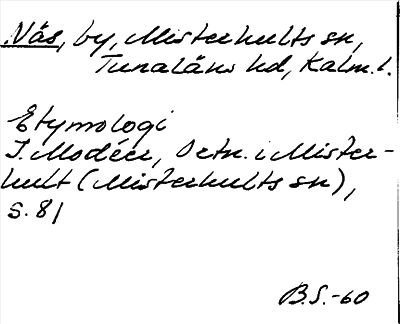 Näs, by, Misterhults sn,
Tunaläns hd, Kalm. l.
Etymologi
I. Modéer, Ortn. i Mister-
hult (Misterhults sn),
s. 81
B.S.-60